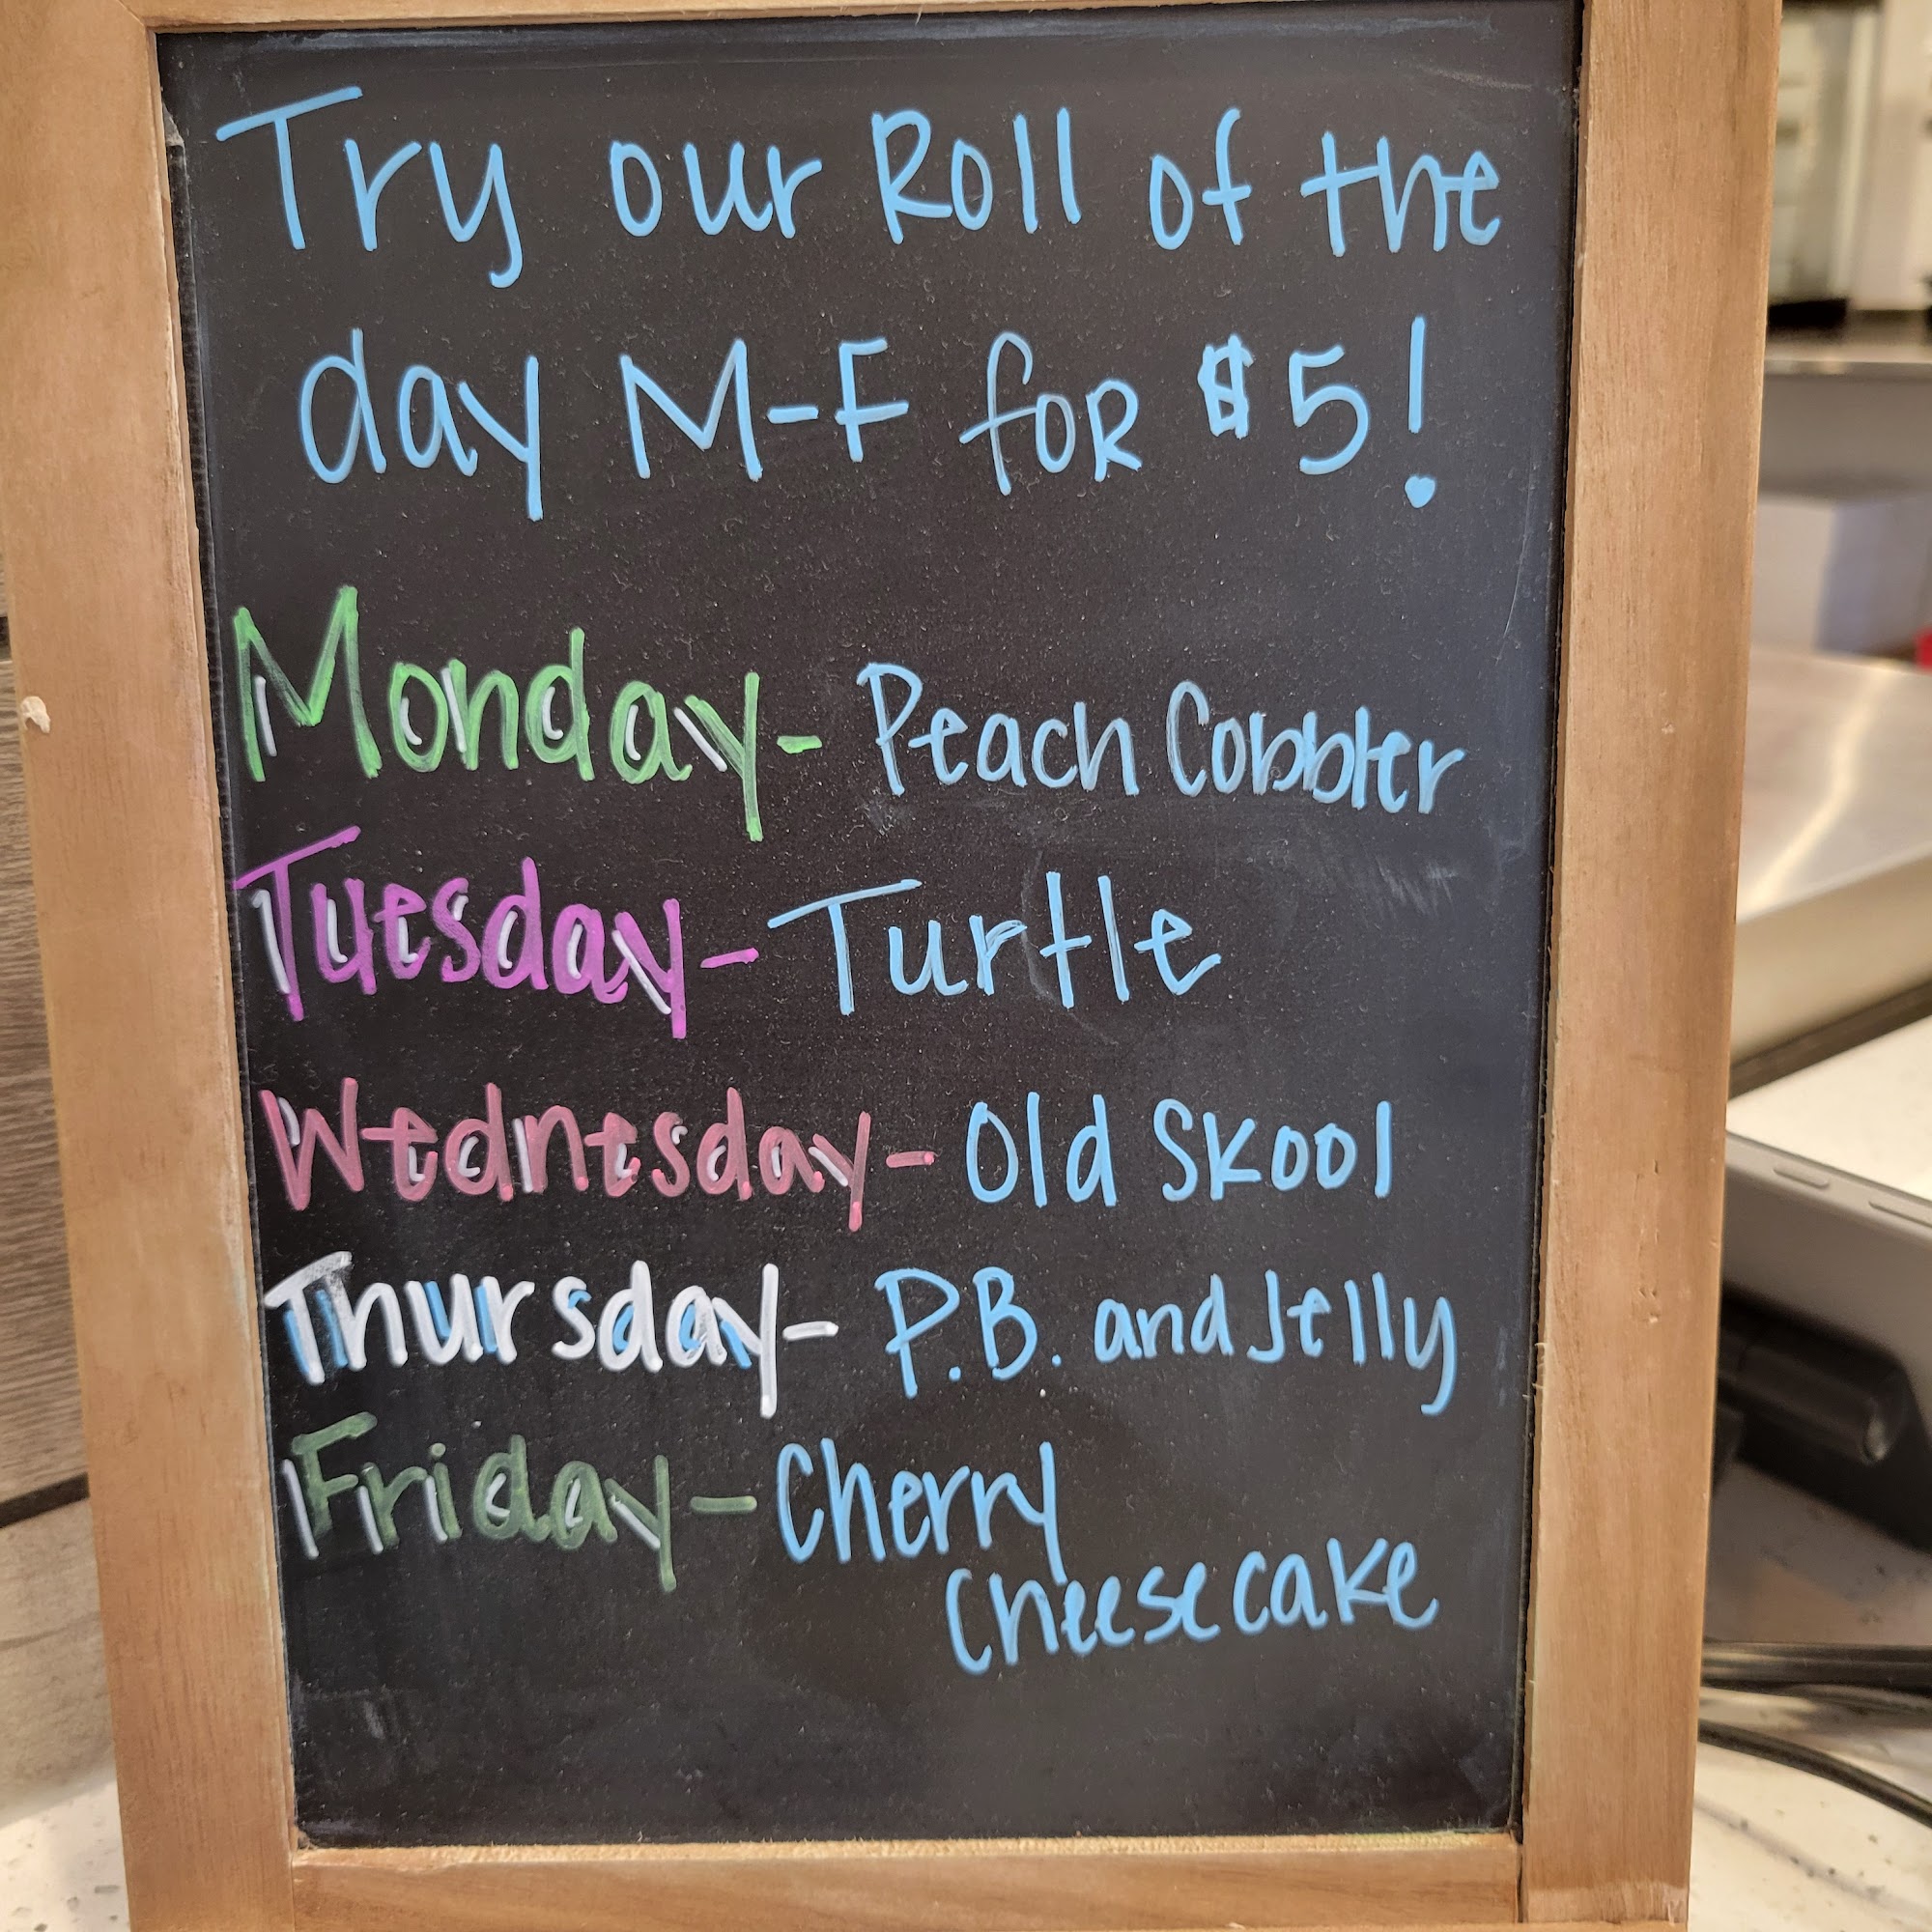 Try our Roll of the
day M-F for $5!
Monday- Peach Cobbler
Tuesday- Turtle
Wednesday- Old Skool
Thursday- P.B. and Jelly
Friday- Cherry
Cheesecake